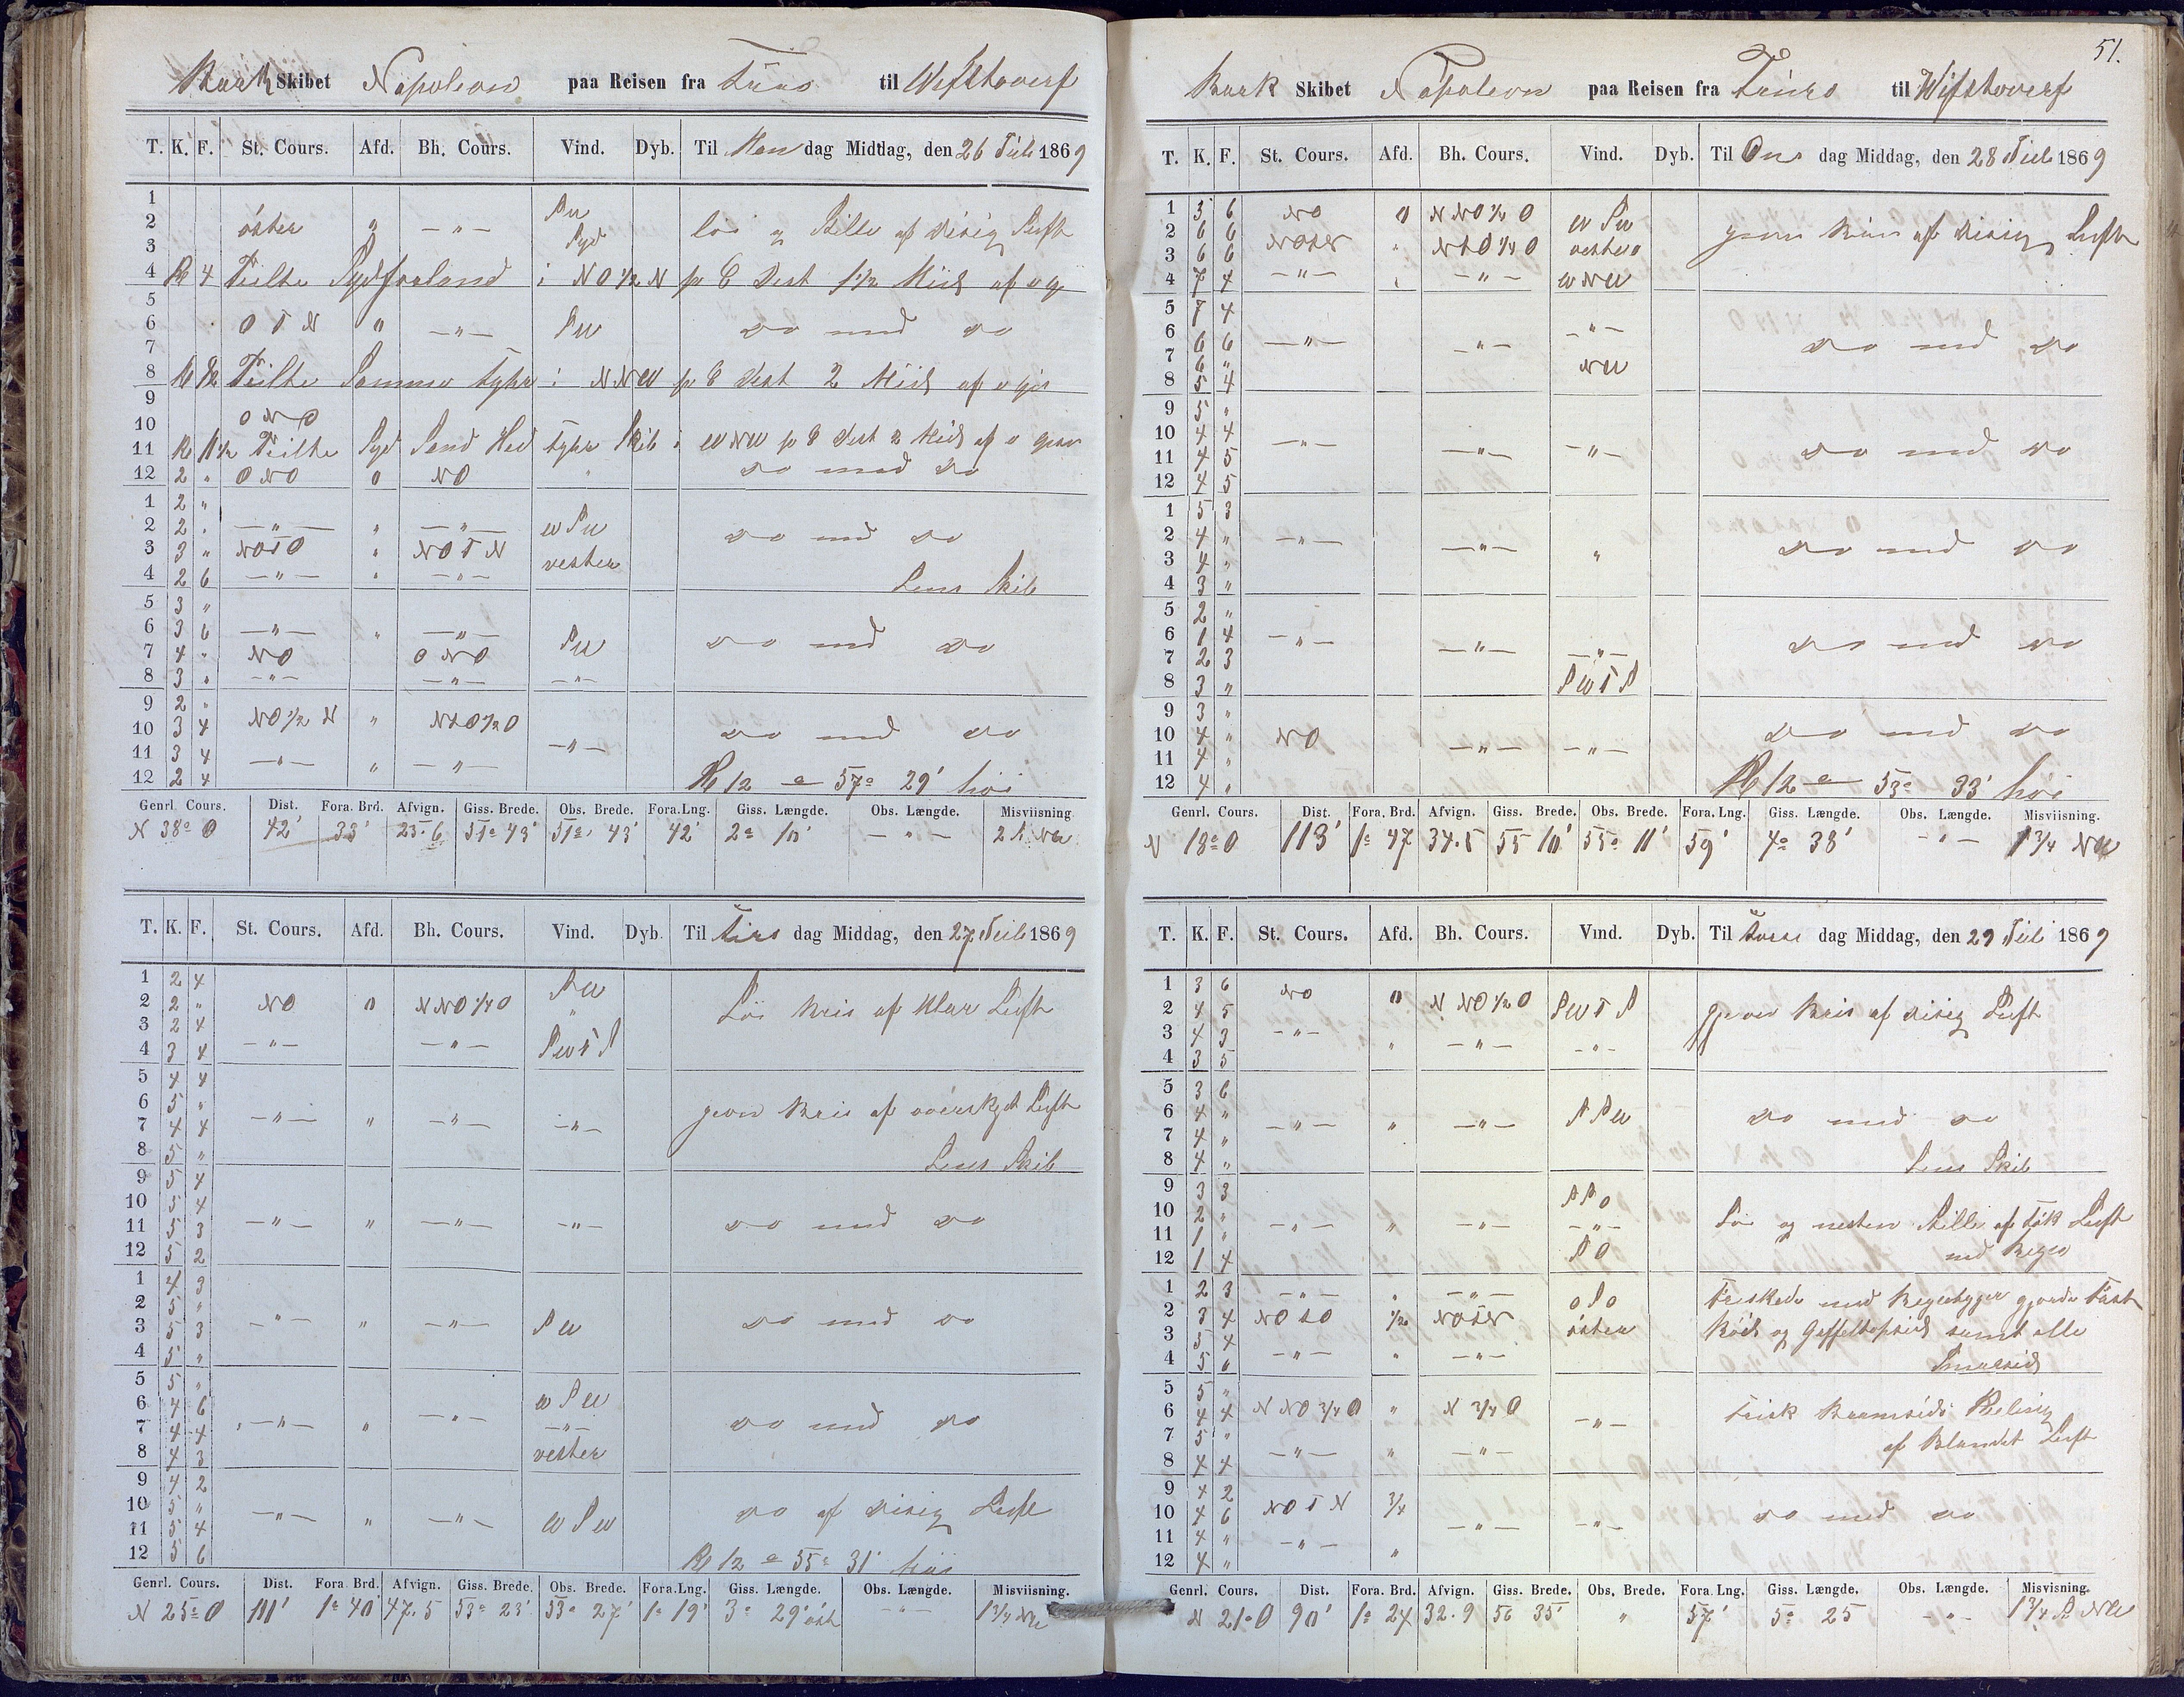 Bark Skibet Napoleon paa Reisen fra til Wifstaverf
T. K. F. St. Cours. Afd. Bh. Cours. Vind. Dyb. Til Man dag Middag, den 26 Juli 1869
1
2 öster " — " — SW Syd löi og Stille af disig Luft
3
4 Kl 4 Peilte Sydforland i NO 1/2 N pr C Dest 1 1/2 Miil af og
5
6 O T N " — " — SW do med do
7
8 Kl 8 1/2 Peilte Samme fyhr i NNW pr C Dest 2 Miil af
9
10 ONO
11 Kl 11 1/2 Peilte Syd Sand Hed fyhr Skib i WNW pr C Dest 2 Miil af
12 2 " ONO " NO do med do
1 2 "
2 2 " — " — " — " — WSW do med do
3 3 " NOTO " NOTN vester
4 2 6 — " — " — " — Lens Skib
5 3 "
6 3 6 — " — " — " — SW do med do
7 4 " NO ONO
8 3 " — " — — " — — " —
9 2 "
10 3 4 NO 1/2 N " NTO 1/2 O — " — do med do
11 3 4 — " — " — " —
12 2 4 Kl 12 e 57° 29' höi
Genrl. Cours. Dist. Fora. Brd. Afvign. Giss. Brede. Obs. Brede. Fora. Lng. Giss. Længde. Obs. Længde. Misviisning.
N 38° O 42' 33' 25.6 51° 43' 51° 43' 42' 2° 10' — " — 2 S. NW
T. K. F. St. Cours. Afd. Bh. Cours. Vind. Dyb. Til Tirs dag Middag, den 27 Juli 1869
1 2 4
2 2 " NO " NNO 1/4 O SW Löi Kris af Klar Luft
3 2 4
4 3 4 — " — — " — SWTS
5 4 4
6 5 " jevn Kris af overskyet Luft
7 4 4 — " — " — " — — " —
8 5 " Lens Skib
9 5 4
10 5 4
11 5 3 — " — " — " — — " — do med do
12 5 2
1 4 3
2 5 "
3 5 3 — " — " — " — SW do med do
4 5 "
5 5 "
6 4 6 WSW
7 4 4 — " — " — " — — " — do med do
8 4 3 vester
9 4 2
10 5 " do af disig Luft
11 5 4 — " — " — " — WSW
12 5 6 Kl 12 e 55° 31' höi
Genrl. Cours. Dist. Fora Brd. Afvign. Giss. Brede. Obs. Brede. Fora. Lng. Giss. Længde. Obs. Længde. Misviisning.
N 25° O 111' 1° 40' 47.5 53° 23' 53° 27' 1° 19' 3° 29' öst — " — 1 3/4 NW
51.
Bark Skibet Napoleon paa Reisen fra til Wifstaverf
T. K. F. St. Cours. Afd. Bh. Cours. Vind. Dyb. Til Ons dag Middag, den 28 Juli 1869
1 3 6 NO " NNO 1/2 O WSW
2 6 6 NOTN " NTO 1/4 O vester jevn Kris af disig Luft
3 6 6
4 7 4 — " — — " — WNW
5 7 4
6 6 6 — " — — " — — " — do med do
7 6 " NW
8 5 4
9 5 "
10 4 4 — " — — " — — " — do med do
11 4 5
12 4 5
1 5 3
2 4 " — " — — " — " do med do
3 4 "
4 3 "
5 2 "
6 1 4 — " — — " — — " — do med do
7 2 3
8 3 " SWTS
9 3 "
10 4 " NO — " — — " — do med do
11 4 "
12 4 " Kl 12 e 53° 33' höi
Genrl. Cours. Dist. Fora. Brd. Afvign. Giss. Brede. Obs. Brede. Fora. Lng. Giss. Længde. Obs. Længde. Misviisning.
N 18° O 113' 1° 47 34.5 55 10' 55° 11' 59' 4° 38' — " — 1 3/4 NW
T. K. F. St. Cours. Afd. Bh. Cours. Vind. Dyb. Til Tors dag Middag, den 29 Juli 1869
1 3 6 NO " NNO 1/2 O SWTS
2 4 5 jevn Kris af disig Luft
3 4 3 — " —
4 3 5 " — " — — " —
5 3 6
6 4 " — " — " — " — SSW do med do
7 4 "
8 4 " Lens Skib
9 3 3 SSO
10 2 " — " — " — " — — " — Löi og nesten Stille af tök Luft
11 1 "
12 1 4 SO med Regn
1 2 3 — " — " — " — OSO Friskede med Regnbyger gjorde fast
2 3 4 NOTO 1/2 NOTN
3 5 4 öster Röil og Gaffeltopseil samt alle
4 5 6 — " — " — " — Smaaseil
5 5 "
6 4 4 NNO 3/4 O " N 3/4 O — " — Frisk Bramseils Kuling
7 5 "
8 4 4 — " — " — " — af Blandet Luft
9 4 2
10 4 6 NOTN 3/4 do med do
11 4 " — " — — " — — " —
12 4 " "
Genrl. Cours. Dist. Fora. Brd. Afvign. Giss. Brede. Obs. Brede. Fora. Lng. Giss. Længde. Obs. Længde. Misvisning.
N 21° O 90' 1° 24 32.9 56 35' " 57' 5° 25 — " — 1 3/4 S. NW